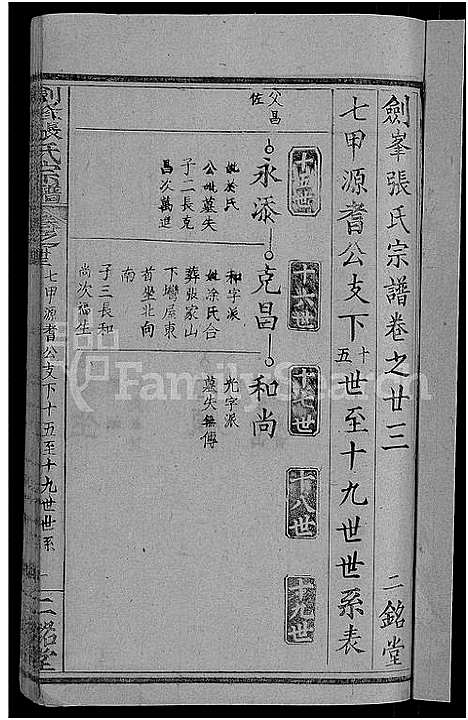 劍峯張氏宗譜卷之廿三
二銘堂
七甲源耆公支下十五世至十九世世系表
十五世
十六世
十七世
十八世
十九世
父昌佐
永添
克昌
和尚
妣於氏
公妣墓失
子二長克
昌次萬進
和字派
妣涂氏合
葬張家山
下塆屋東
首坐北向
南
子三長和
尚次
光字派
墓失無傳
劍峯張氏宗譜
七甲源耆公支下十五至十九世世系
一
二銘堂
FamilySearch